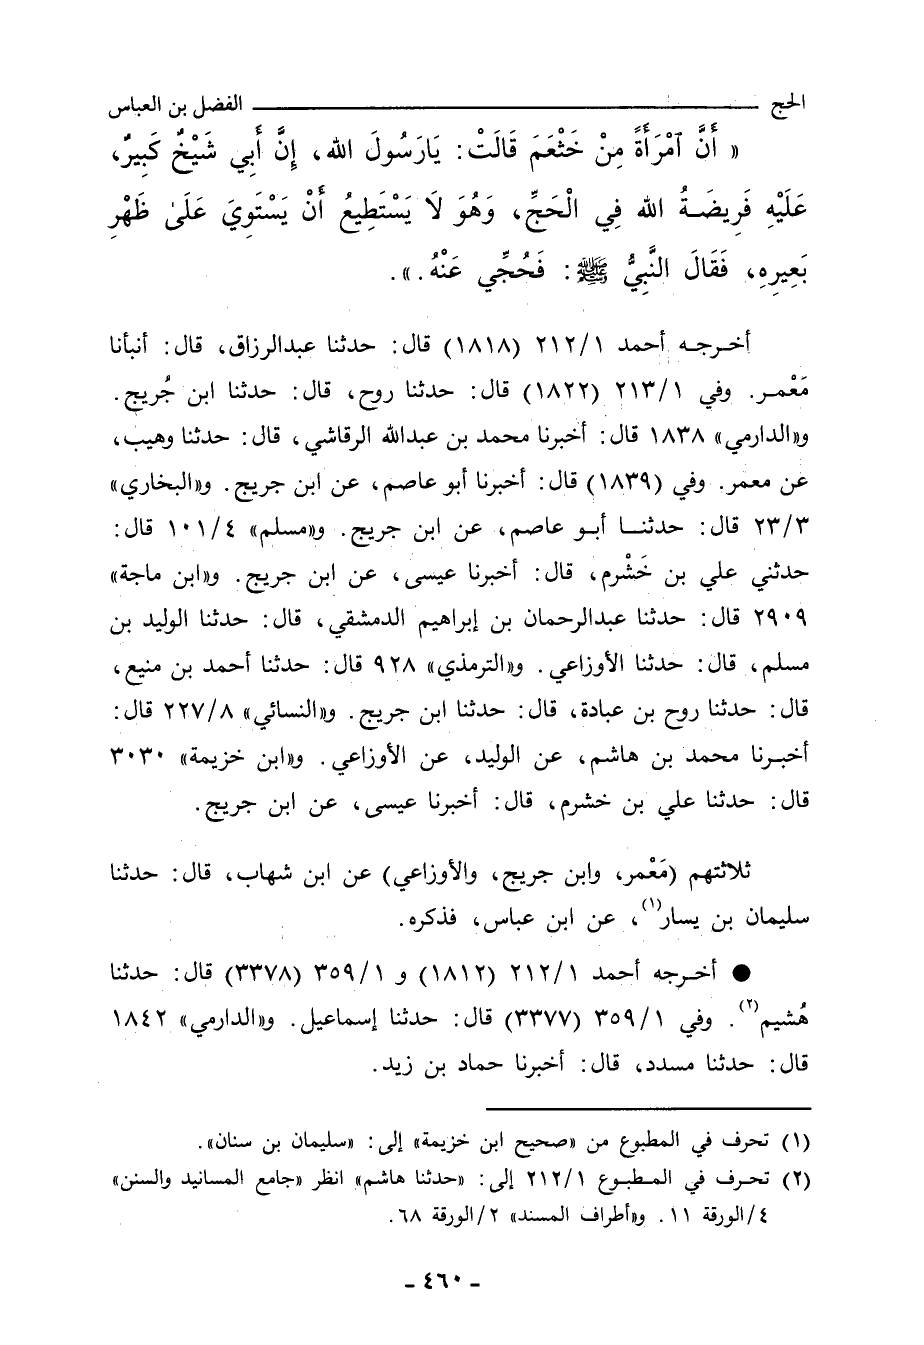 الحج ـــــــــ الفضل بن العباس
« أَنَّ ٱمْرَأَةً مِنْ خَثْعَمَ قَالَتْ: يَارَسُولَ الله، إِنَّ أَبِي شَيْخٌ كَبِيرٌ،
عَلَيْهِ فَرِيضَةُ الله فِي الْحَجِّ، وَهُوَ لَا يَسْتَطِيعُ أَنْ يَسْتَوِيَ عَلَىٰ ظَهْرِ
بَعِيرِهِ، فَقَالَ النَّبِيُّ ﷺ: فَحُجِّي عَنْهُ.».
أخرجه أحمد ٢١٢/١ (١٨١٨) قال: حدثنا عبدالرزاق، قال: أنبأنا
مَعْمر. وفي ٢١٣/١ (١٨٢٢) قال: حدثنا روح، قال: حدثنا ابن جُريج.
و«الدارمي» ١٨٣٨ قال: أخبرنا محمد بن عبدالله الرقاشي، قال: حدثنا وهيب،
عن معمر. وفي (١٨٣٩) قال: أخبرنا أبو عاصم، عن ابن جريج. و«البخاري»
٢٣/٣ قال: حدثنا أبو عاصم، عن ابن جريج. و«مسلم» ١٠١/٤ قال:
حدثني علي بن خَشْرم، قال: أخبرنا عيسى، عن ابن جريج. و«ابن ماجة»
٢٩٠٩ قال: حدثنا عبدالرحمان بن إبراهيم الدمشقي، قال: حدثنا الوليد بن
مسلم، قال: حدثنا الأوزاعي. و«الترمذي» ٩٢٨ قال: حدثنا أحمد بن منيع،
قال: حدثنا روح بن عبادة، قال: حدثنا ابن جريج. و«النسائي» ٢٢٧/٨ قال:
أخبرنا محمد بن هاشم، عن الوليد، عن الأوزاعي. و«ابن خزيمة» ٣٠٣٠
قال: حدثنا علي بن خشرم، قال: أخبرنا عيسى، عن ابن جريج.
ثلاثتهم (مَعْمر، وابن جريج، والأوزاعي) عن ابن شهاب، قال: حدثنا
سليمان بن يسار(١)، عن ابن عباس، فذكره.
● أخرجه أحمد ٢١٢/١ (١٨١٢) و ٣٥٩/١ (٣٣٧٨) قال: حدثنا
هُشيم(٢). وفي ٣٥٩/١ (٣٣٧٧) قال: حدثنا إسماعيل. و«الدارمي» ١٨٤٢
قال: حدثنا مسدد، قال: أخبرنا حماد بن زيد.
(١) تحرف في المطبوع من «صحيح ابن خزيمة» إلى: «سليمان بن سنان».
(٢) تحرف في المطبوع ٢١٢/١ إلى: «حدثنا هاشم» انظر «جامع المسانيد والسنن»
٤/الورقة ١١. و«أطراف المسند» ٢/الورقة ٦٨.
- ٤٦٠ -